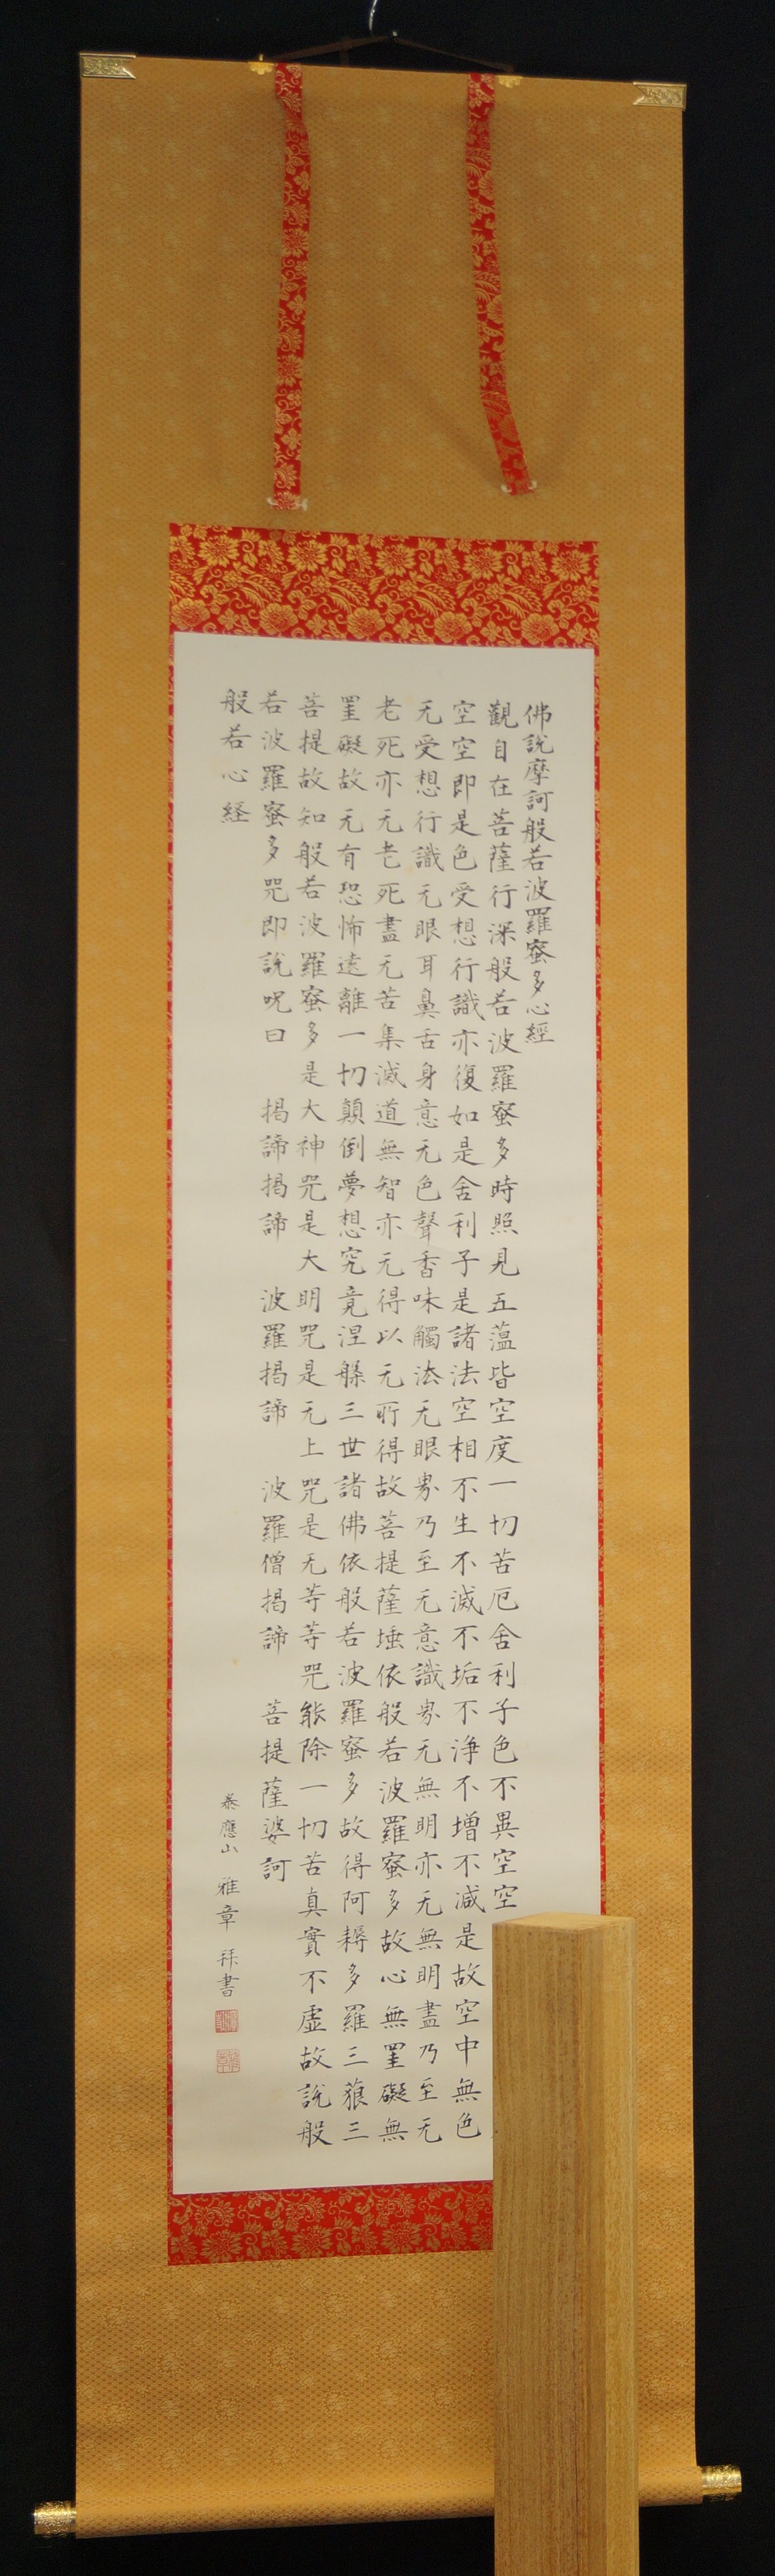 佛説摩訶般若波羅蜜多心經
觀自在菩薩行深般若波羅蜜多時照見五蕰皆空度一切苦厄舍利子色不異空空
空空即是色受想行識亦復如是舍利子是諸法空相不生不滅不垢不浄不増不減是故空中無色
无受想行識无眼耳鼻舌身意无色聲香味觸法无眼界乃至无意識界无無明亦无無明盡乃至无
老死亦无老死盡无苦集滅道無智亦无得以无所得故菩提薩埵依般若波羅蜜多故心無罣礙無
罣礙故无有恐怖遠離一切顛倒夢想究竟涅槃三世諸佛依般若波羅蜜多故得阿耨多羅三藐三
菩提故知般若波羅蜜多是大神咒是大明咒是无上咒是无等等咒能除一切苦真實不虚故説般
若波羅蜜多咒即説呪曰 揭諦揭諦 波羅揭諦 波羅僧揭諦 菩提薩婆訶
般若心経
泰應山 雅章 拝書